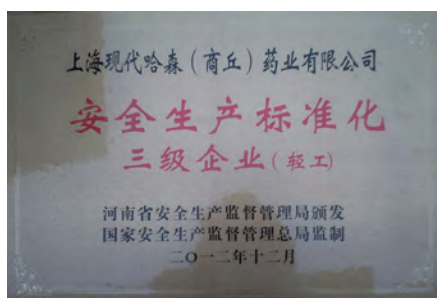 上海现代哈森（商丘）药业有限公司
安全生产标准化
三级企业（轻工）
河南省安全生产监督管理局颁发
国家安全生产监督管理总局监制
二〇一二年十二月